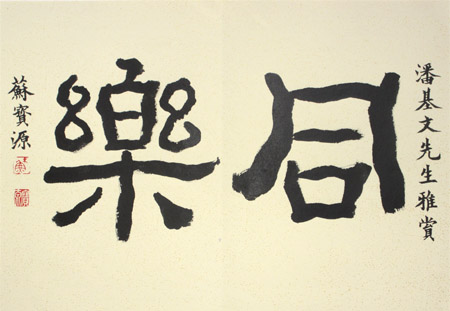 潘基文先生雅赏
同樂
蘇寶源